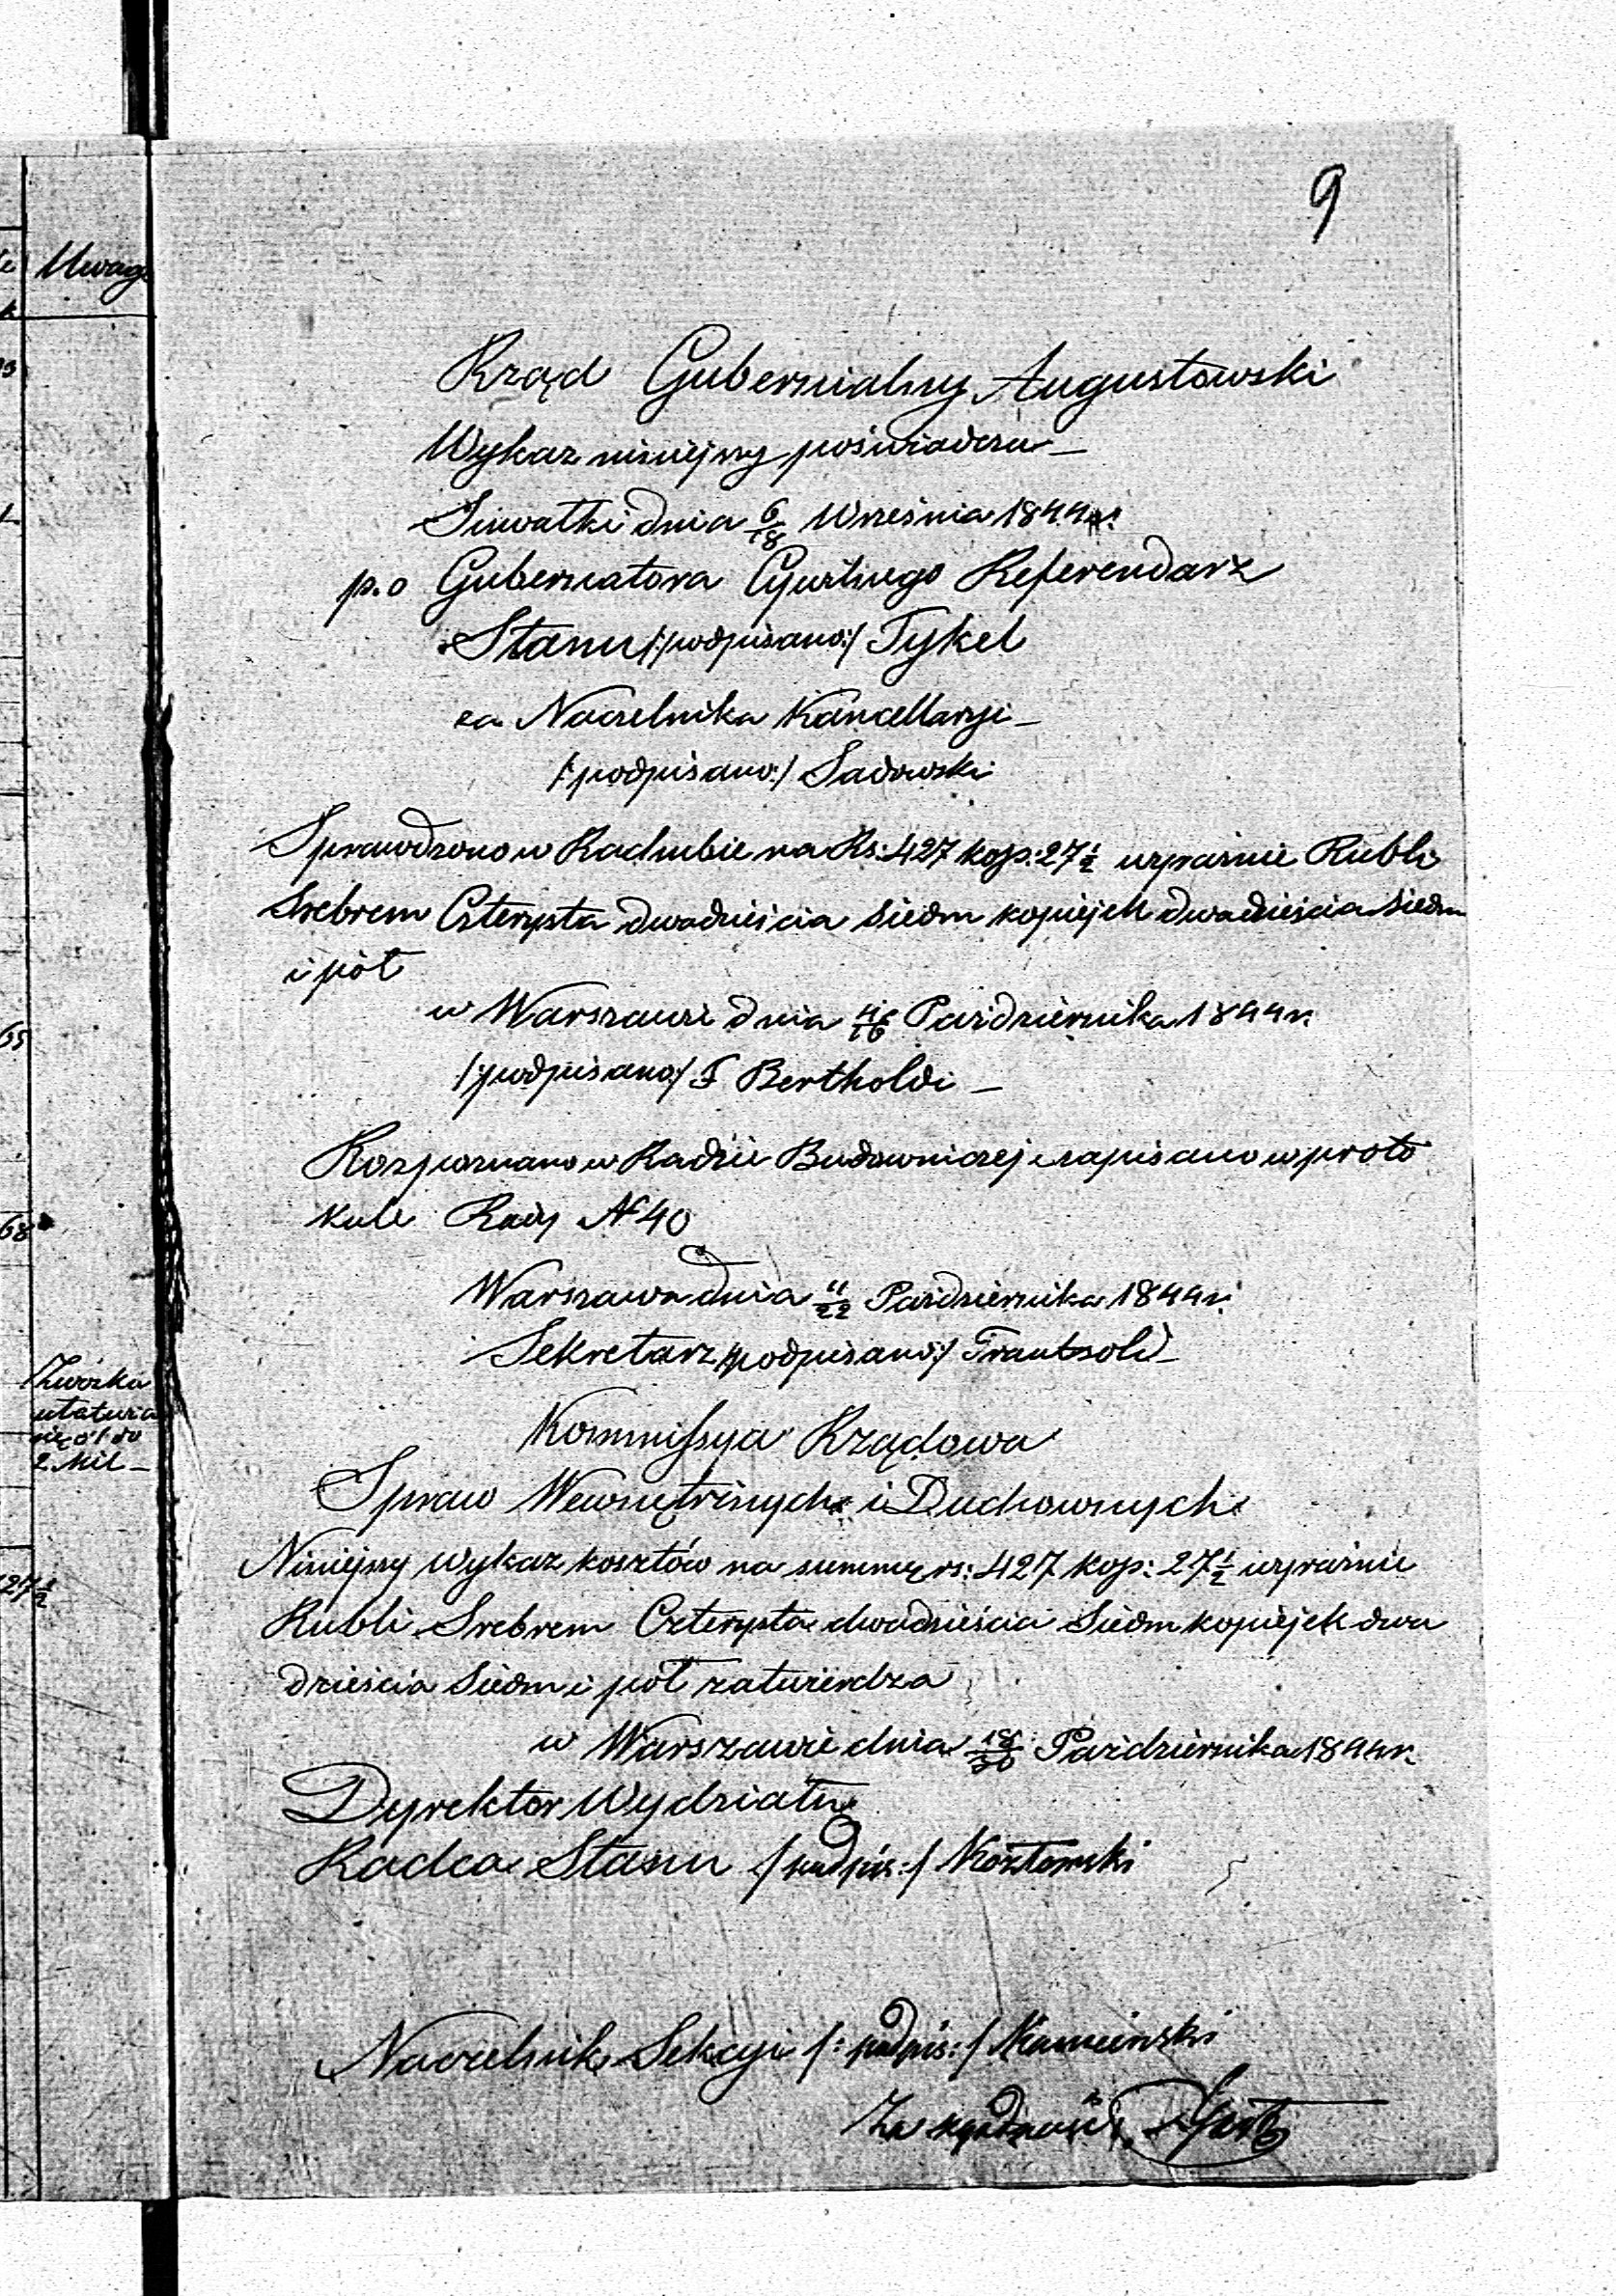 9
Uwag
Rząd Gubernialny Augustowski
Wykaz niniejszy poświadcza
Suwałki dnia 6/18 Września 1844 r.
p.o Gubernatora Cywilnego Referendarz
Stanu /:podpisano:/ Tykel
za Naczelnika Kancellaryi
/:podpisano:/ Sadowski
Sprawdzono w Rachubie na Rs: 427 kop: 27 1/2 wyraźnie Rubli
Srebrem Czterysta dwadzieścia siedm kopiejek dwadzieścia siedm
i pół
w Warszawie dnia 4/16 Października 1844 r.
/:podpisano:/ F Bertholdi
Rozpoznano w Radzie Budowniczej i zapisano w proto
kule Rady N 40
Warszawa dnia 11/22 Października 1844 r.
Sekretarz /:podpisano:/ Frantzold
Zwózka
ułatwia
się od do
2. Mil
Kommissya Rządowa
Spraw Wewnętrznych i Duchownych
Niniejszy wykaz kosztów na summę rs: 427 kop: 27 1/2 wyraźnie
27 1/2
Rubli Srebrem Czterysta dwadzieścia Siedm kopiejek dwa
dzieścia Siedm i pół zatwierdza
w Warszawie dnia 18/30 Października 1844 r.
Dyrektor Wydziału
Radca Stanu /:podpis:/ Kozłowski
Naczelnik Sekcyi /:podpis:/ Kamieński
Za zgodność